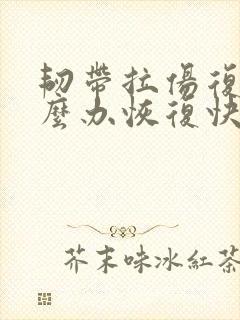 韌帶拉傷復
麼办恢復快
芥末味冰紅茶